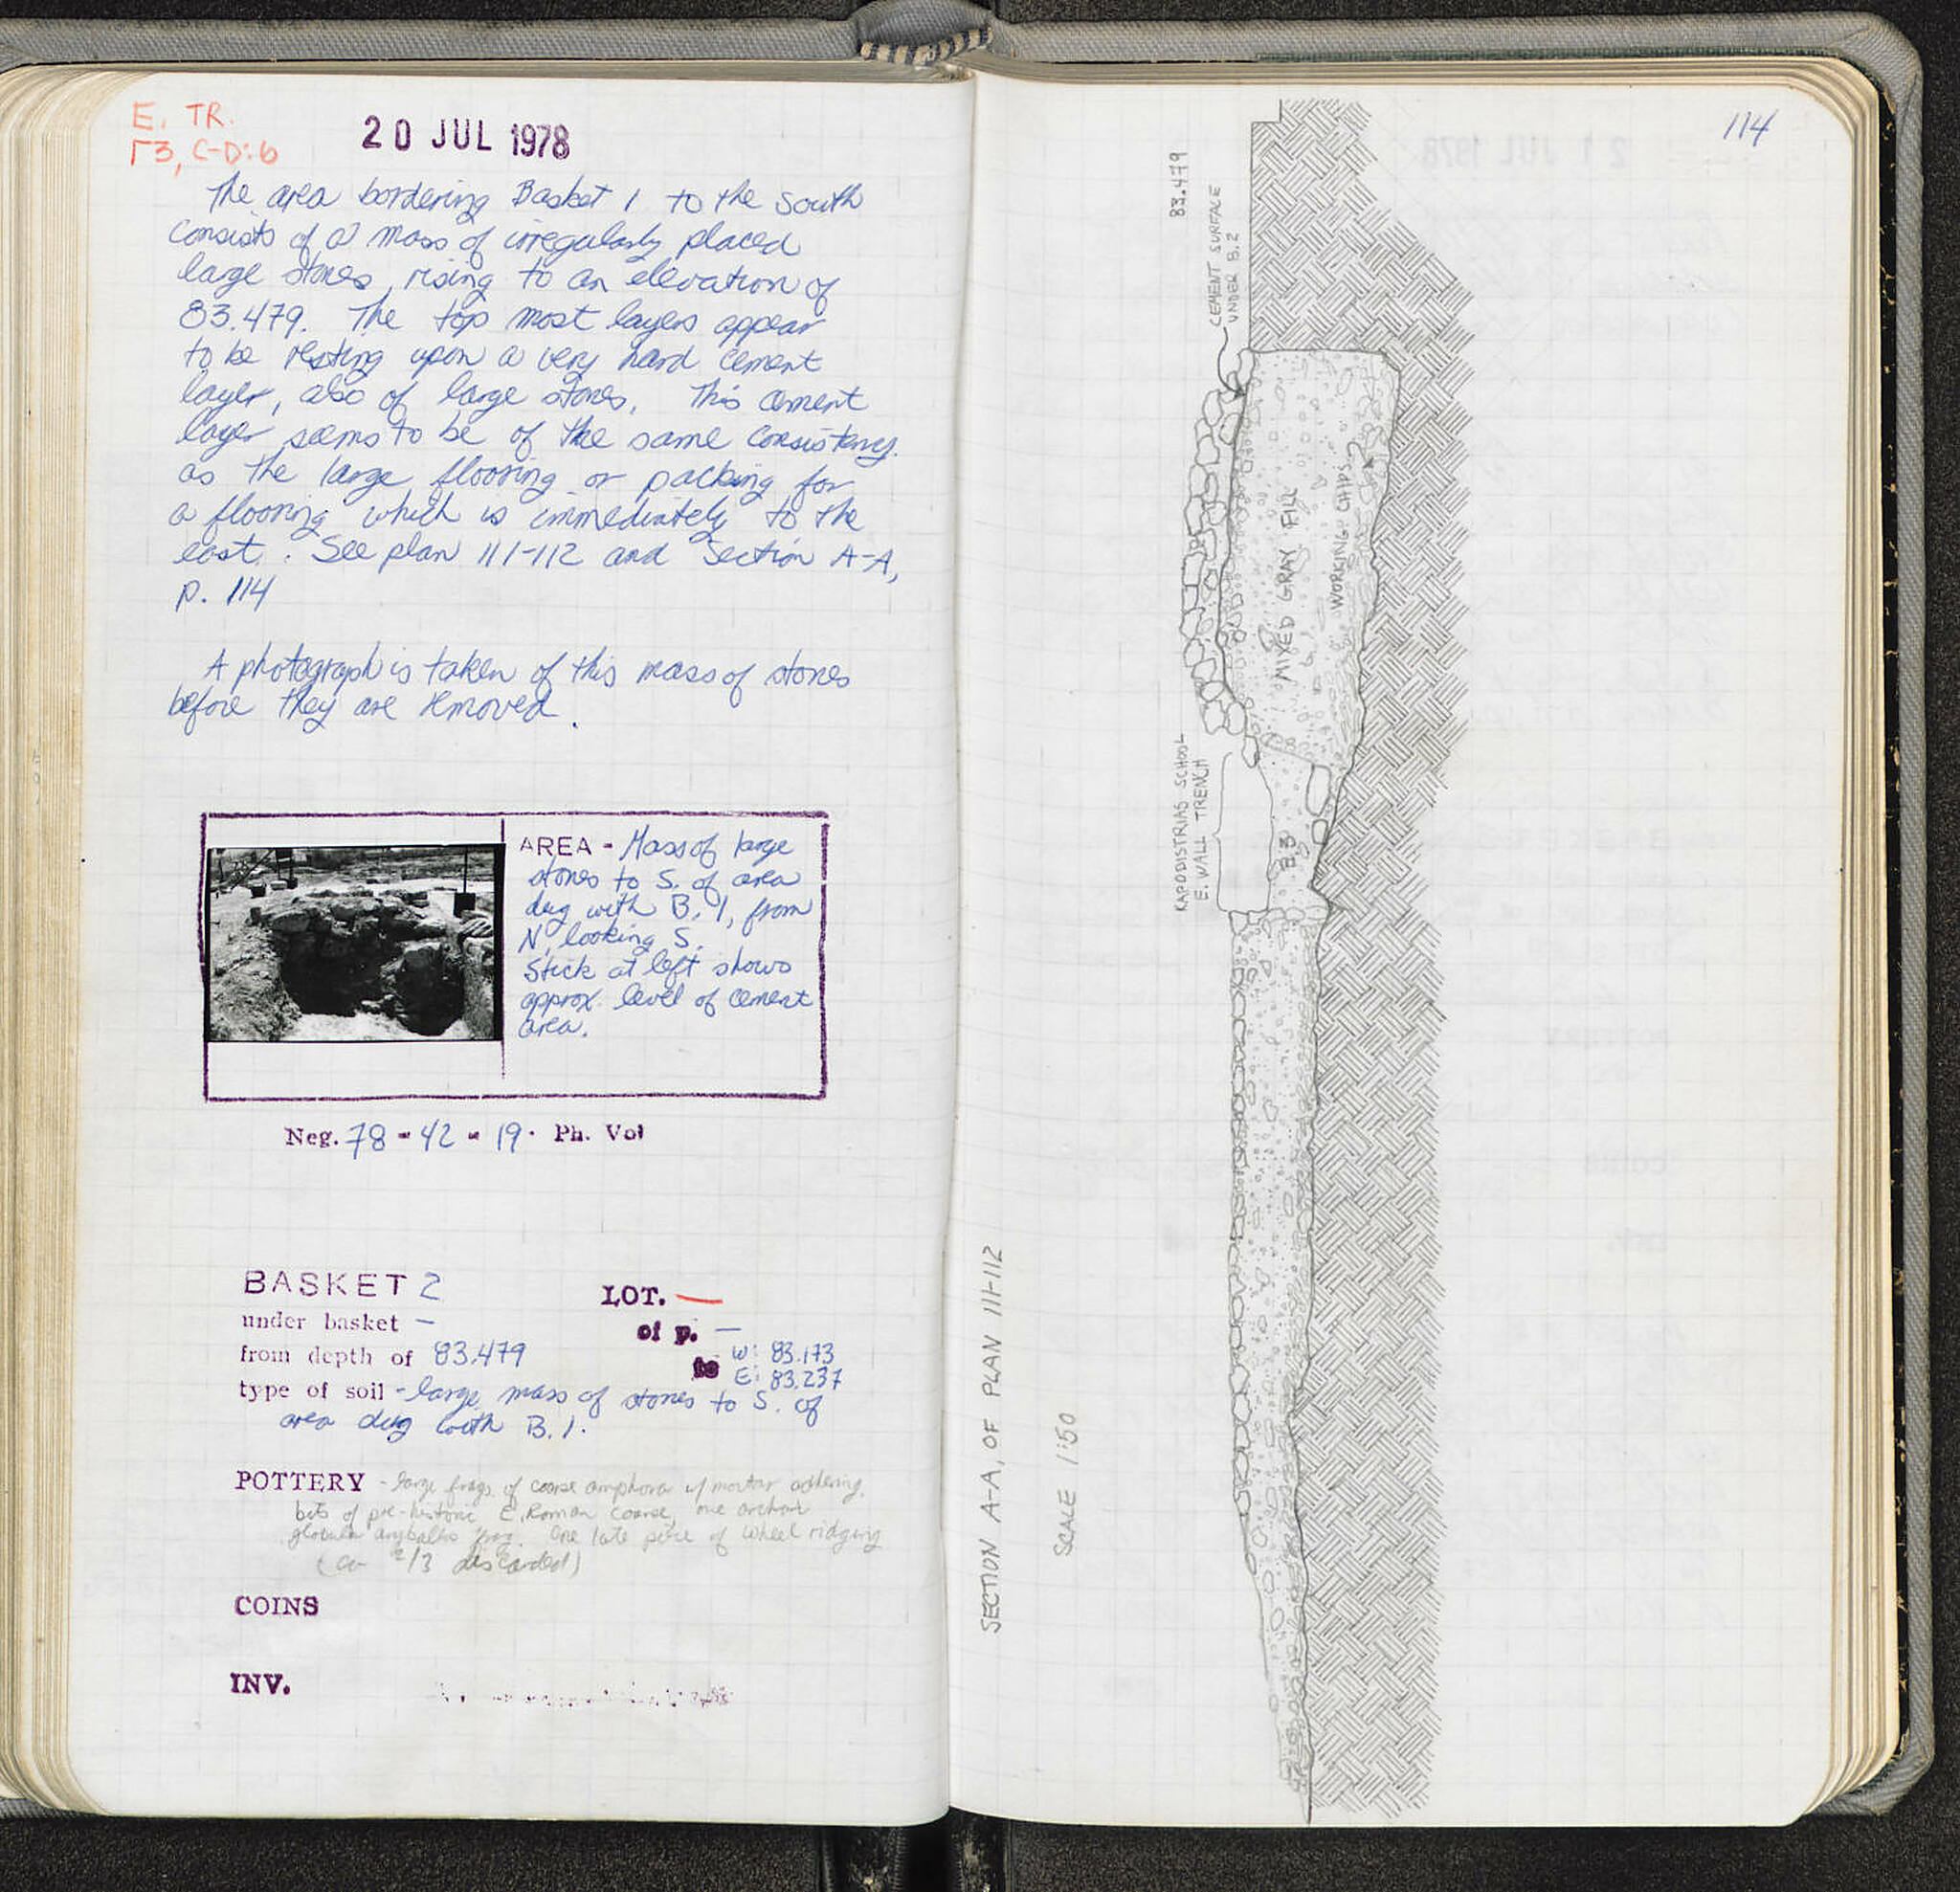 E. TR.
Γ3, C-D:6
20 JUL 1978
The area bordering Basket 1 to the South
consists of a mass of irregularly placed
large stones, rising to an elevation of
83.479. The top most layers appear
to be resting upon a very hard cement
layer, also of large stones. This cement
layer seems to be of the same consistency
as the large flooring or packing for
a flooring which is immediately to the
east. See plan 111-112 and Section A-A,
p. 114
A photograph is taken of this mass of stones
before they are removed.
AREA - Mass of large
stones to S. of area
dug with B. 1, from
N, looking S.
Stick at left shows
approx. level of cement
area.
Neg. 78-42-19. Ph. Vol
BASKET 2
LOT. —
under basket —
of p. —
from depth of 83.479
to W: 83.173
E: 83.237
type of soil - large mass of stones to S. of
area dug with B. 1.
POTTERY - large frags of coarse amphorae w/ mortar adhering,
bits of pre-historic E. Roman coarse, one archaic
globular aryballos frag. One late piece of wheel ridging
(ca 2/3 discarded)
COINS
INV.
114
83.479
CEMENT SURFACE
UNDER B.2
MIXED GRAY FILL
WORKING CHIPS?
KAPODISTRIAS SCHOOL
E. WALL TRENCH
B3
SECTION A-A, OF PLAN 111-112
SCALE 1:50